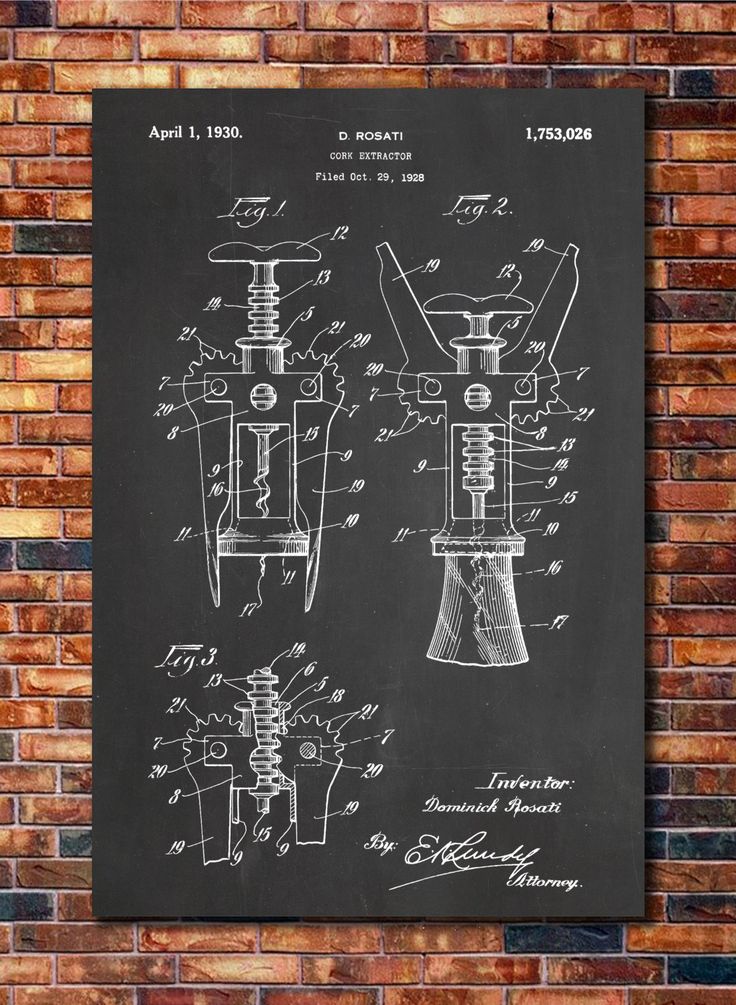 April 1, 1930. D. ROSATI 1,753,026
CORK EXTRACTOR
Filed Oct. 29, 1928
Fig. 1. Fig. 2.
12 19 19
13 19 12 19
14 5 5
21 21 20 20
7 7 20 7
20 7 7 21
8 15 21 8
9 9 13
16 19 9 14
9
10 15
11 11 10
11 16
17 17
Fig. 3. 14
13 6
5
21 18 21
7 7
20 20
8
19 15 19
9 9
Inventor:
Dominick Rosati
By:
Attorney.